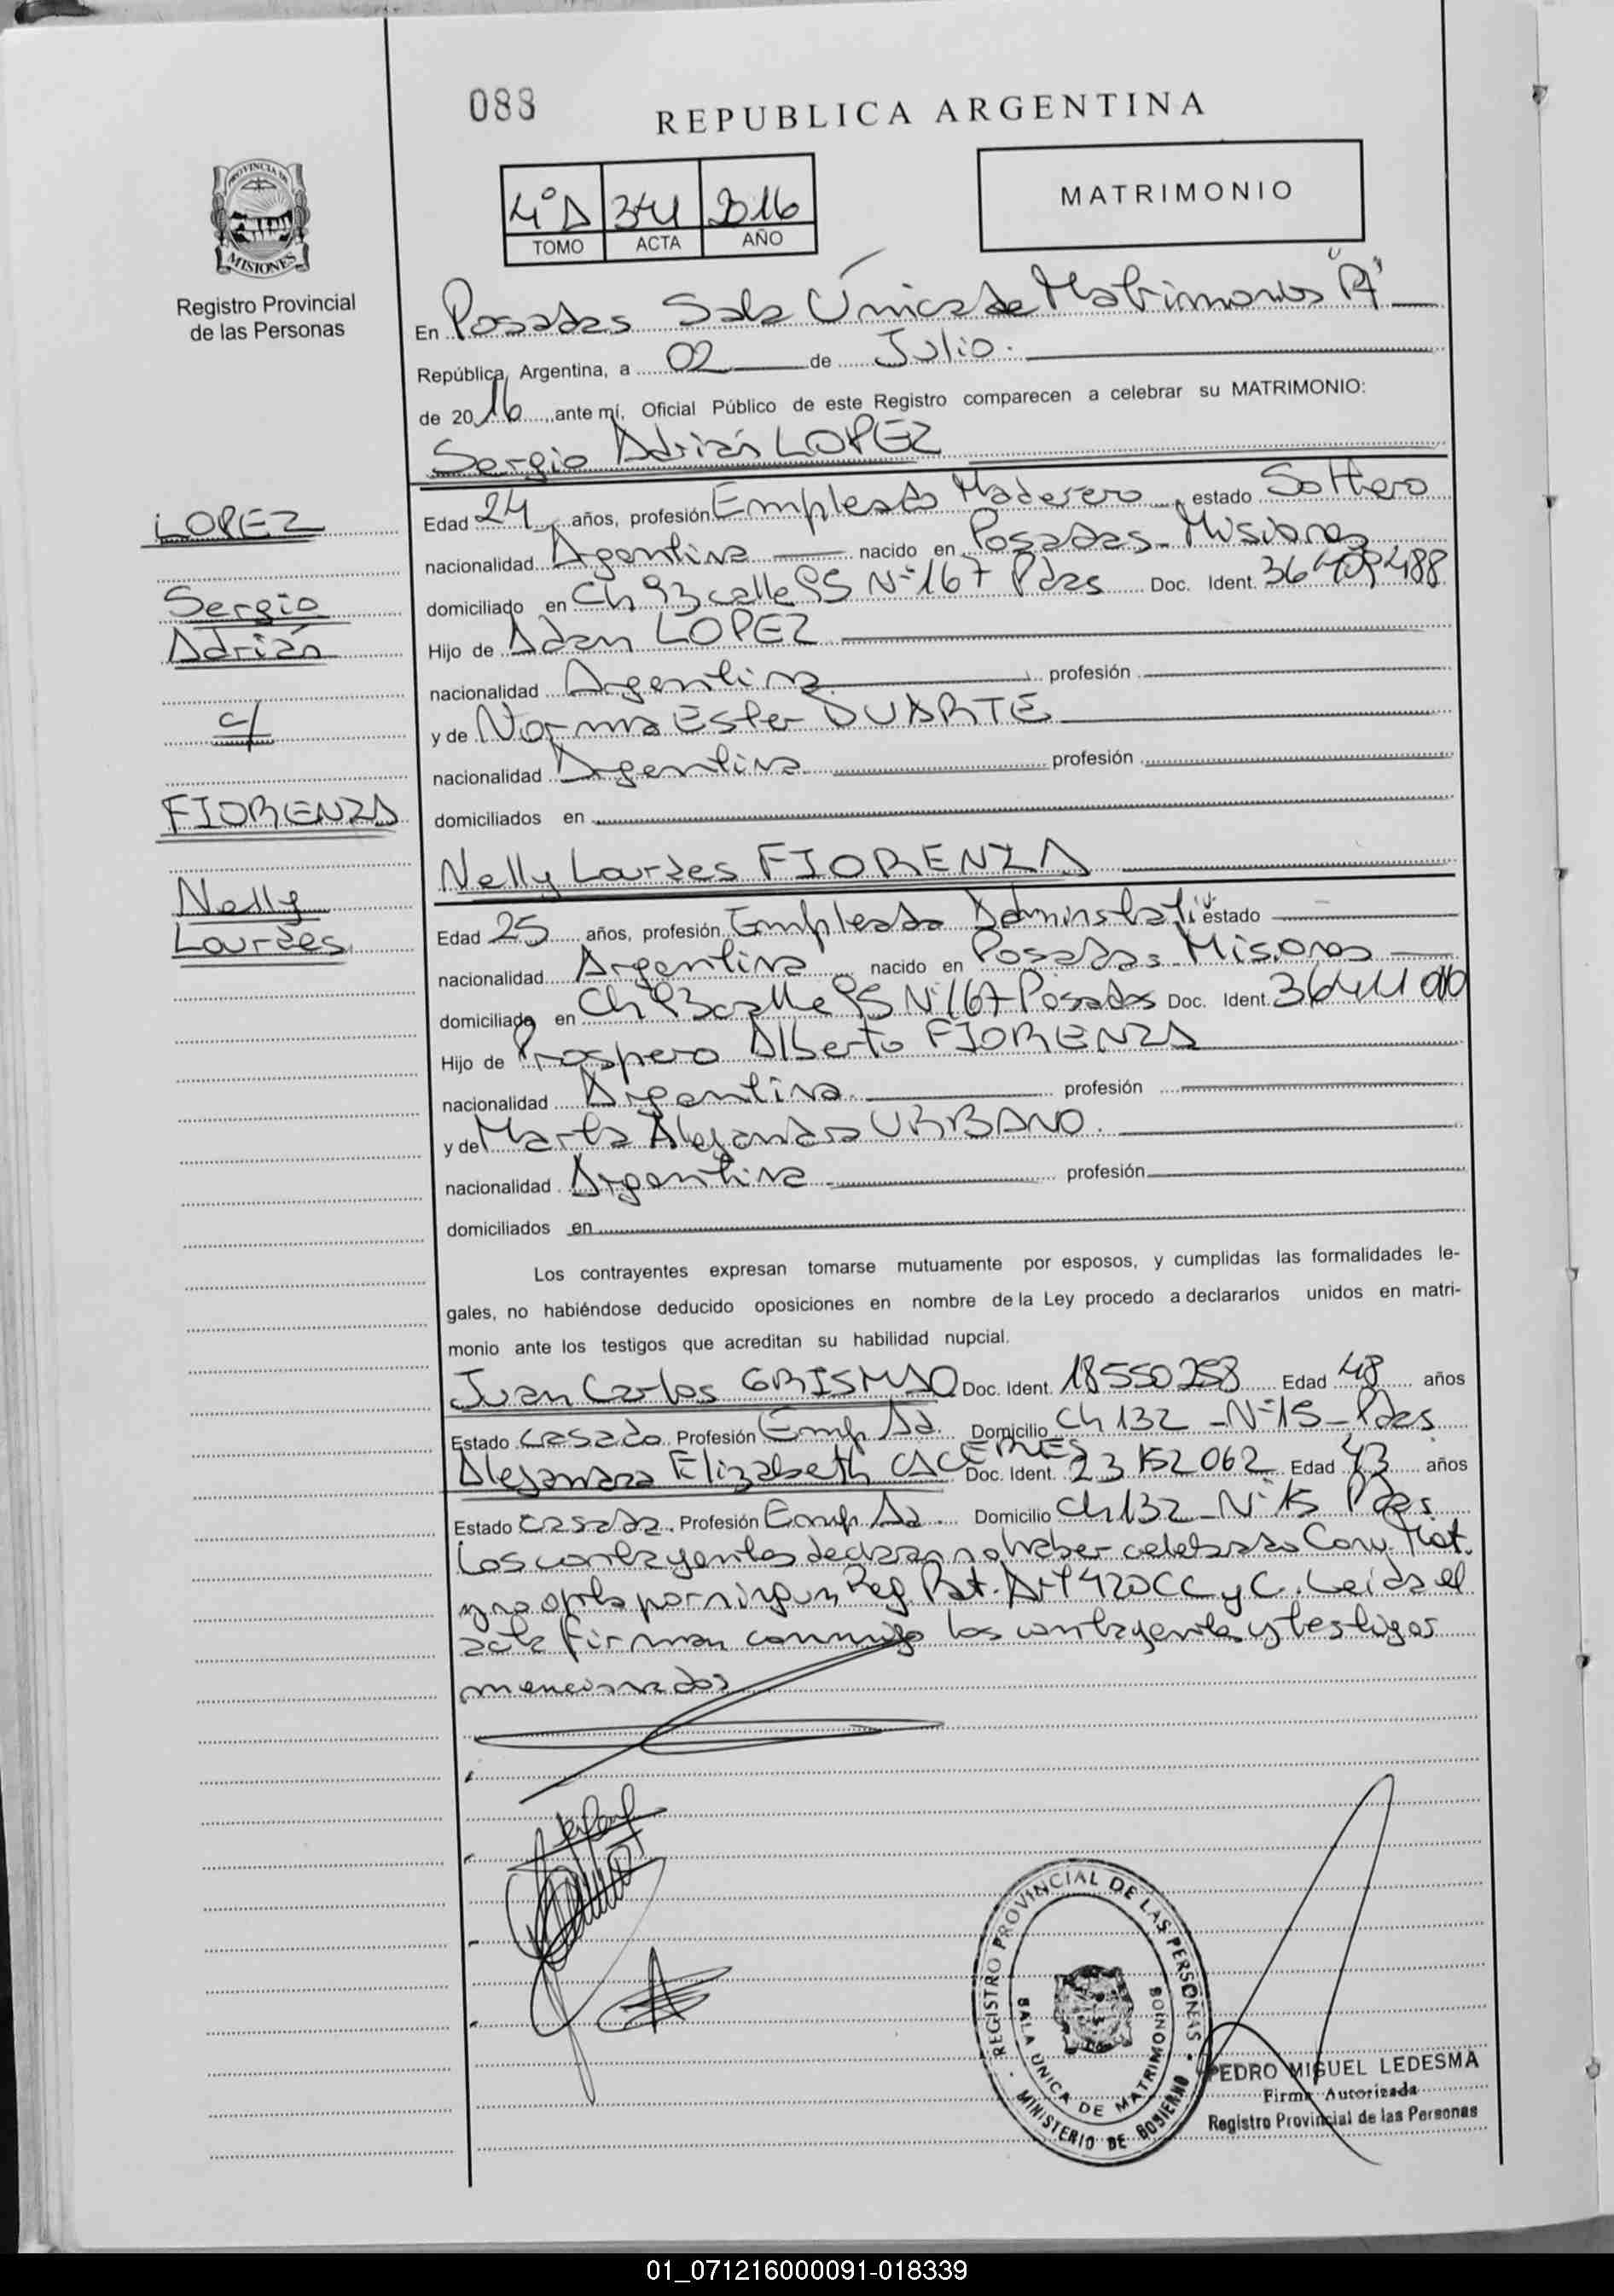 088
REPUBLICA ARGENTINA
PROVINCIA DE
MISIONES
Registro Provincial
de las Personas
4º A 341 2016
TOMO ACTA AÑO
MATRIMONIO
En Posadas Sala Única de Matrimonios "A"
República Argentina, a 02 de Julio.
de 2016 ante mí, Oficial Público de este Registro comparecen a celebrar su MATRIMONIO:
Sergio Adrián LOPEZ
LOPEZ
Sergio
Adrián
c/
FIORENZA
Nelly
Lourdes
Edad 24 años, profesión Empleado Maderero, estado Soltero
nacionalidad Agentina nacido en Posadas - Misiones
domiciliado en Ch 93 calle 95 Nº 167 Pdas Doc. Ident. 36409488
Hijo de Adan LOPEZ
nacionalidad Argentina profesión
y de Norma Ester DUARTE
nacionalidad Argentina profesión
domiciliados en
Nelly Lourdes FIORENZA
Edad 25 años, profesión Empleada estado
nacionalidad Argentina nacido en Posadas - Misiones
domiciliada en Ch 93 calle 95 Nº 167 Posadas Doc. Ident.
Hijo de Prospero Alberto FIORENZA
nacionalidad Argentina profesión
y de Marta Alejandra URBANO.
nacionalidad Argentina profesión
domiciliados en
Los contrayentes expresan tomarse mutuamente por esposos, y cumplidas las formalidades le-
gales, no habiéndose deducido oposiciones en nombre de la Ley procedo a declararlos unidos en matri-
monio ante los testigos que acreditan su habilidad nupcial.
Juan Carlos Doc. Ident. 18550258 Edad 48 años
Estado casado Profesión Emp Ad. Domicilio Ch 132 - Nº 15 - Pdas
Alejandra Elizabeth CACERES Doc. Ident. 23152062 Edad 43 años
Estado casada. Profesión Emp Ad. Domicilio Ch 132 - Nº 15 Pdas.
Los contrayentes declaran no haber celebrado Conv. Mat.
y no opta por ningun Reg Pat. Art 420 CC y C. Leida el
acta firman conmigo los contrayentes y testigos
mencionados
REGISTRO PROVINCIAL DE LAS PERSONAS
SALA ÚNICA DE MATRIMONIOS
MINISTERIO DE GOBIERNO
PEDRO MIGUEL LEDESMA
Firma Autorizada
Registro Provincial de las Personas
01_071216000091-018339